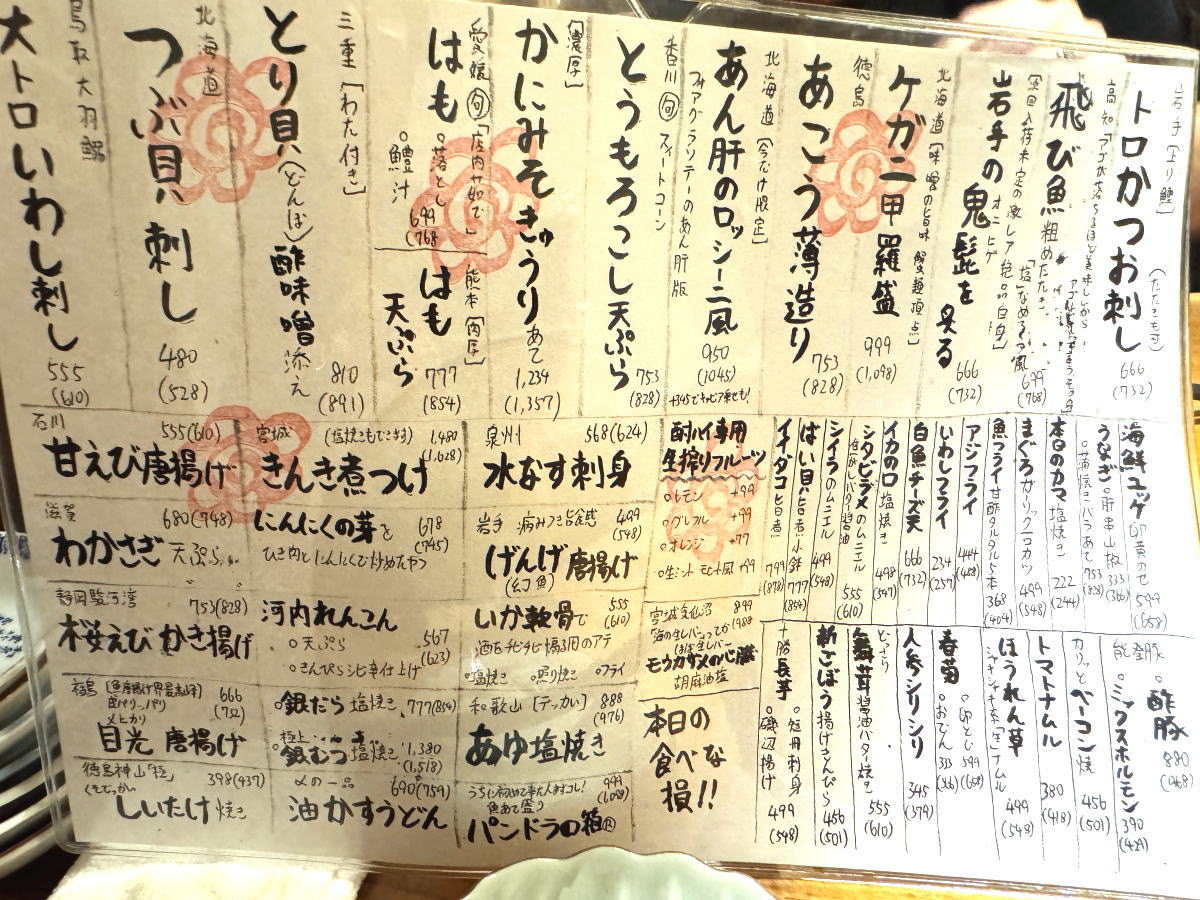 岩手［上り鰹］
トロかつお刺し
（たたきも可）
666
(732)
高知「アゴが落ちるほど美味しいから
飛び魚 粗めたたき
「塩」なめろう風
699
(768)
［次回入荷未定の激レア絶品白身］
岩手の鬼髭を炙る
オニ ヒゲ
666
(732)
北海道［味噌の旨味 蟹麺頂点］
ケガニ甲羅盛
999
(1,098)
徳島
あこう薄造り
753
(828)
北海道［今だけ限定］
あん肝のロッシーニ風
フォアグラソテーのあん肝版
950
(1045)
+345でキャビア乗せも!
香川 旬 スィートコーン
とうもろこし天ぷら
753
(828)
［濃厚］
かにみそきゅうりあて
1,234
(1,357)
愛媛 旬「店内サ如で」
はも
○落とし
○鱧汁
699
(768
熊本［肉厚］
はも天ぷら
777
(854)
三重［わた付き］
とり貝（どんぼ）酢味噌添え
810
(891)
北海道
つぶ貝刺し
480
(528)
鳥取大羽鰯
大トロいわし刺し
555
(610)
石川
555(610)
甘えび唐揚げ
滋賀
680(748)
わかさぎ天ぷら
静岡駿河湾
753(828)
桜えびかき揚げ
福島
666
(732)
メヒカリ
目光 唐揚げ
徳島神山「極」
398(437)
しいたけ焼き
宮城
(塩焼きもできます)
1,480
(1,628)
きんき煮つけ
にんにくの芽を
678
(745)
ひき肉とにんにくで炒めたやつ
河内れんこん
○天ぷら
○きんぴらピリ辛仕上げ
567
(623)
○銀だら塩焼き 777(854)
極上
○銀むつ塩焼き 1,380
(1,518)
〆の一品
690(759)
油かすうどん
泉州
568(624)
水なす刺身
岩手 病みつき旨食感
499
(548)
げんげ唐揚げ
(幻魚)
いか軟骨で
555
(610)
酒をチビチビ煽る用のアテ
○塩焼き ○照り焼き ○フライ
和歌山［デッカい］
888
(976)
あゆ塩焼き
うちに初めて来た人まずコレ!
魚あて盛り
999
(1,098)
パンドラの箱®
酎ハイ専用
生搾りフルーツ
○レモン +99
○グレフル +99
○オレンジ +77
○生ミント モヒート風 +99
宮城気仙沼 899
(988
海の生レバーってか
ほぼ生レバー
モウカザメの心臓
胡麻油塩
本日の
食べな
損!!
海鮮ユッケ 卵黄のせ
599
(658)
うなぎ
○蒲焼きバラあて
753
(828)
○肝串山椒
333
(366)
本日のカマ塩焼き
222
(244)
まぐろガーリック一口カツ
499
(548)
魚フライ甘酢タルタル5本
368
(404)
アジフライ
444
(488)
いわしフライ
234
(257)
白魚チーズ天
666
(732)
イカの口塩焼き
498
(547)
シタビラメのムニエル
甘がしバター醤油
555
(610)
シイラのムニエル
499
(548)
ばい貝旨煮小鉢
777
(854)
イイダコ旨煮
799
(878)
能登豚
○酢豚
880
(968)
○ミックスホルモン
390
(429)
カリッとベーコン焼
456
(501)
トマトナムル
380
(418)
ほうれん草
シャキシャキ系「生」ナムル
499
(548)
春菊
○卵とじ
599
(658)
○おでん
333
(366)
人参シリシリ
345
(379)
どっさり
舞茸醤油バター焼き
555
(610)
新ごぼう揚げきんぴら
456
(501)
十勝長芋
○短冊刺身
○磯辺揚げ
499
(548)